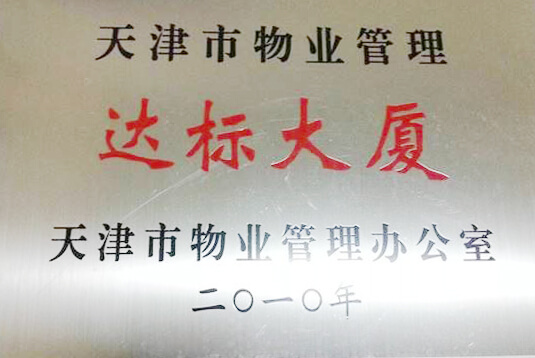 天津市物业管理
达标大厦
天津市物业管理办公室
二〇一〇年